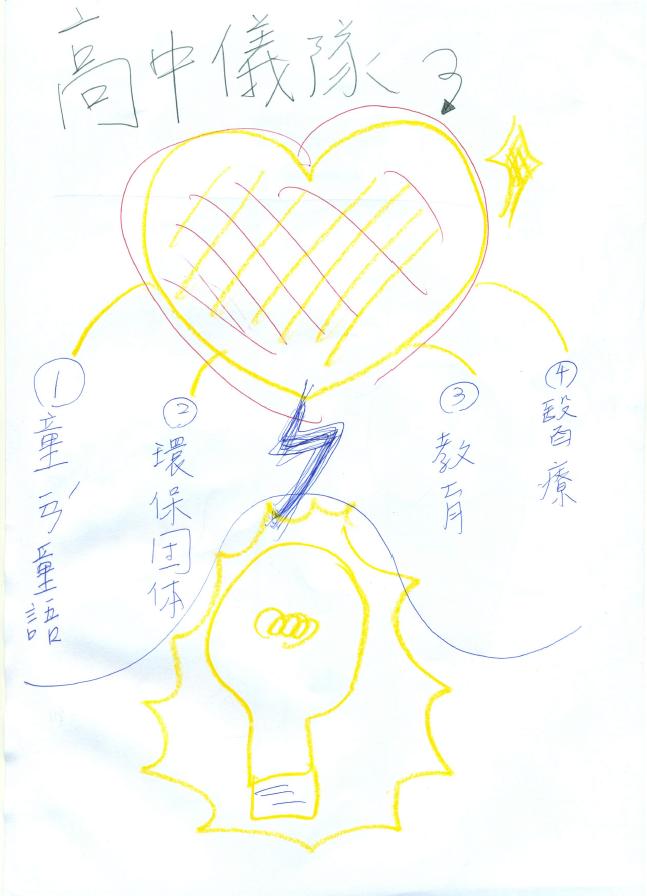 高中儀隊
① 童ㄢˊ童語
② 環保团体
③ 教育
④ 醫療